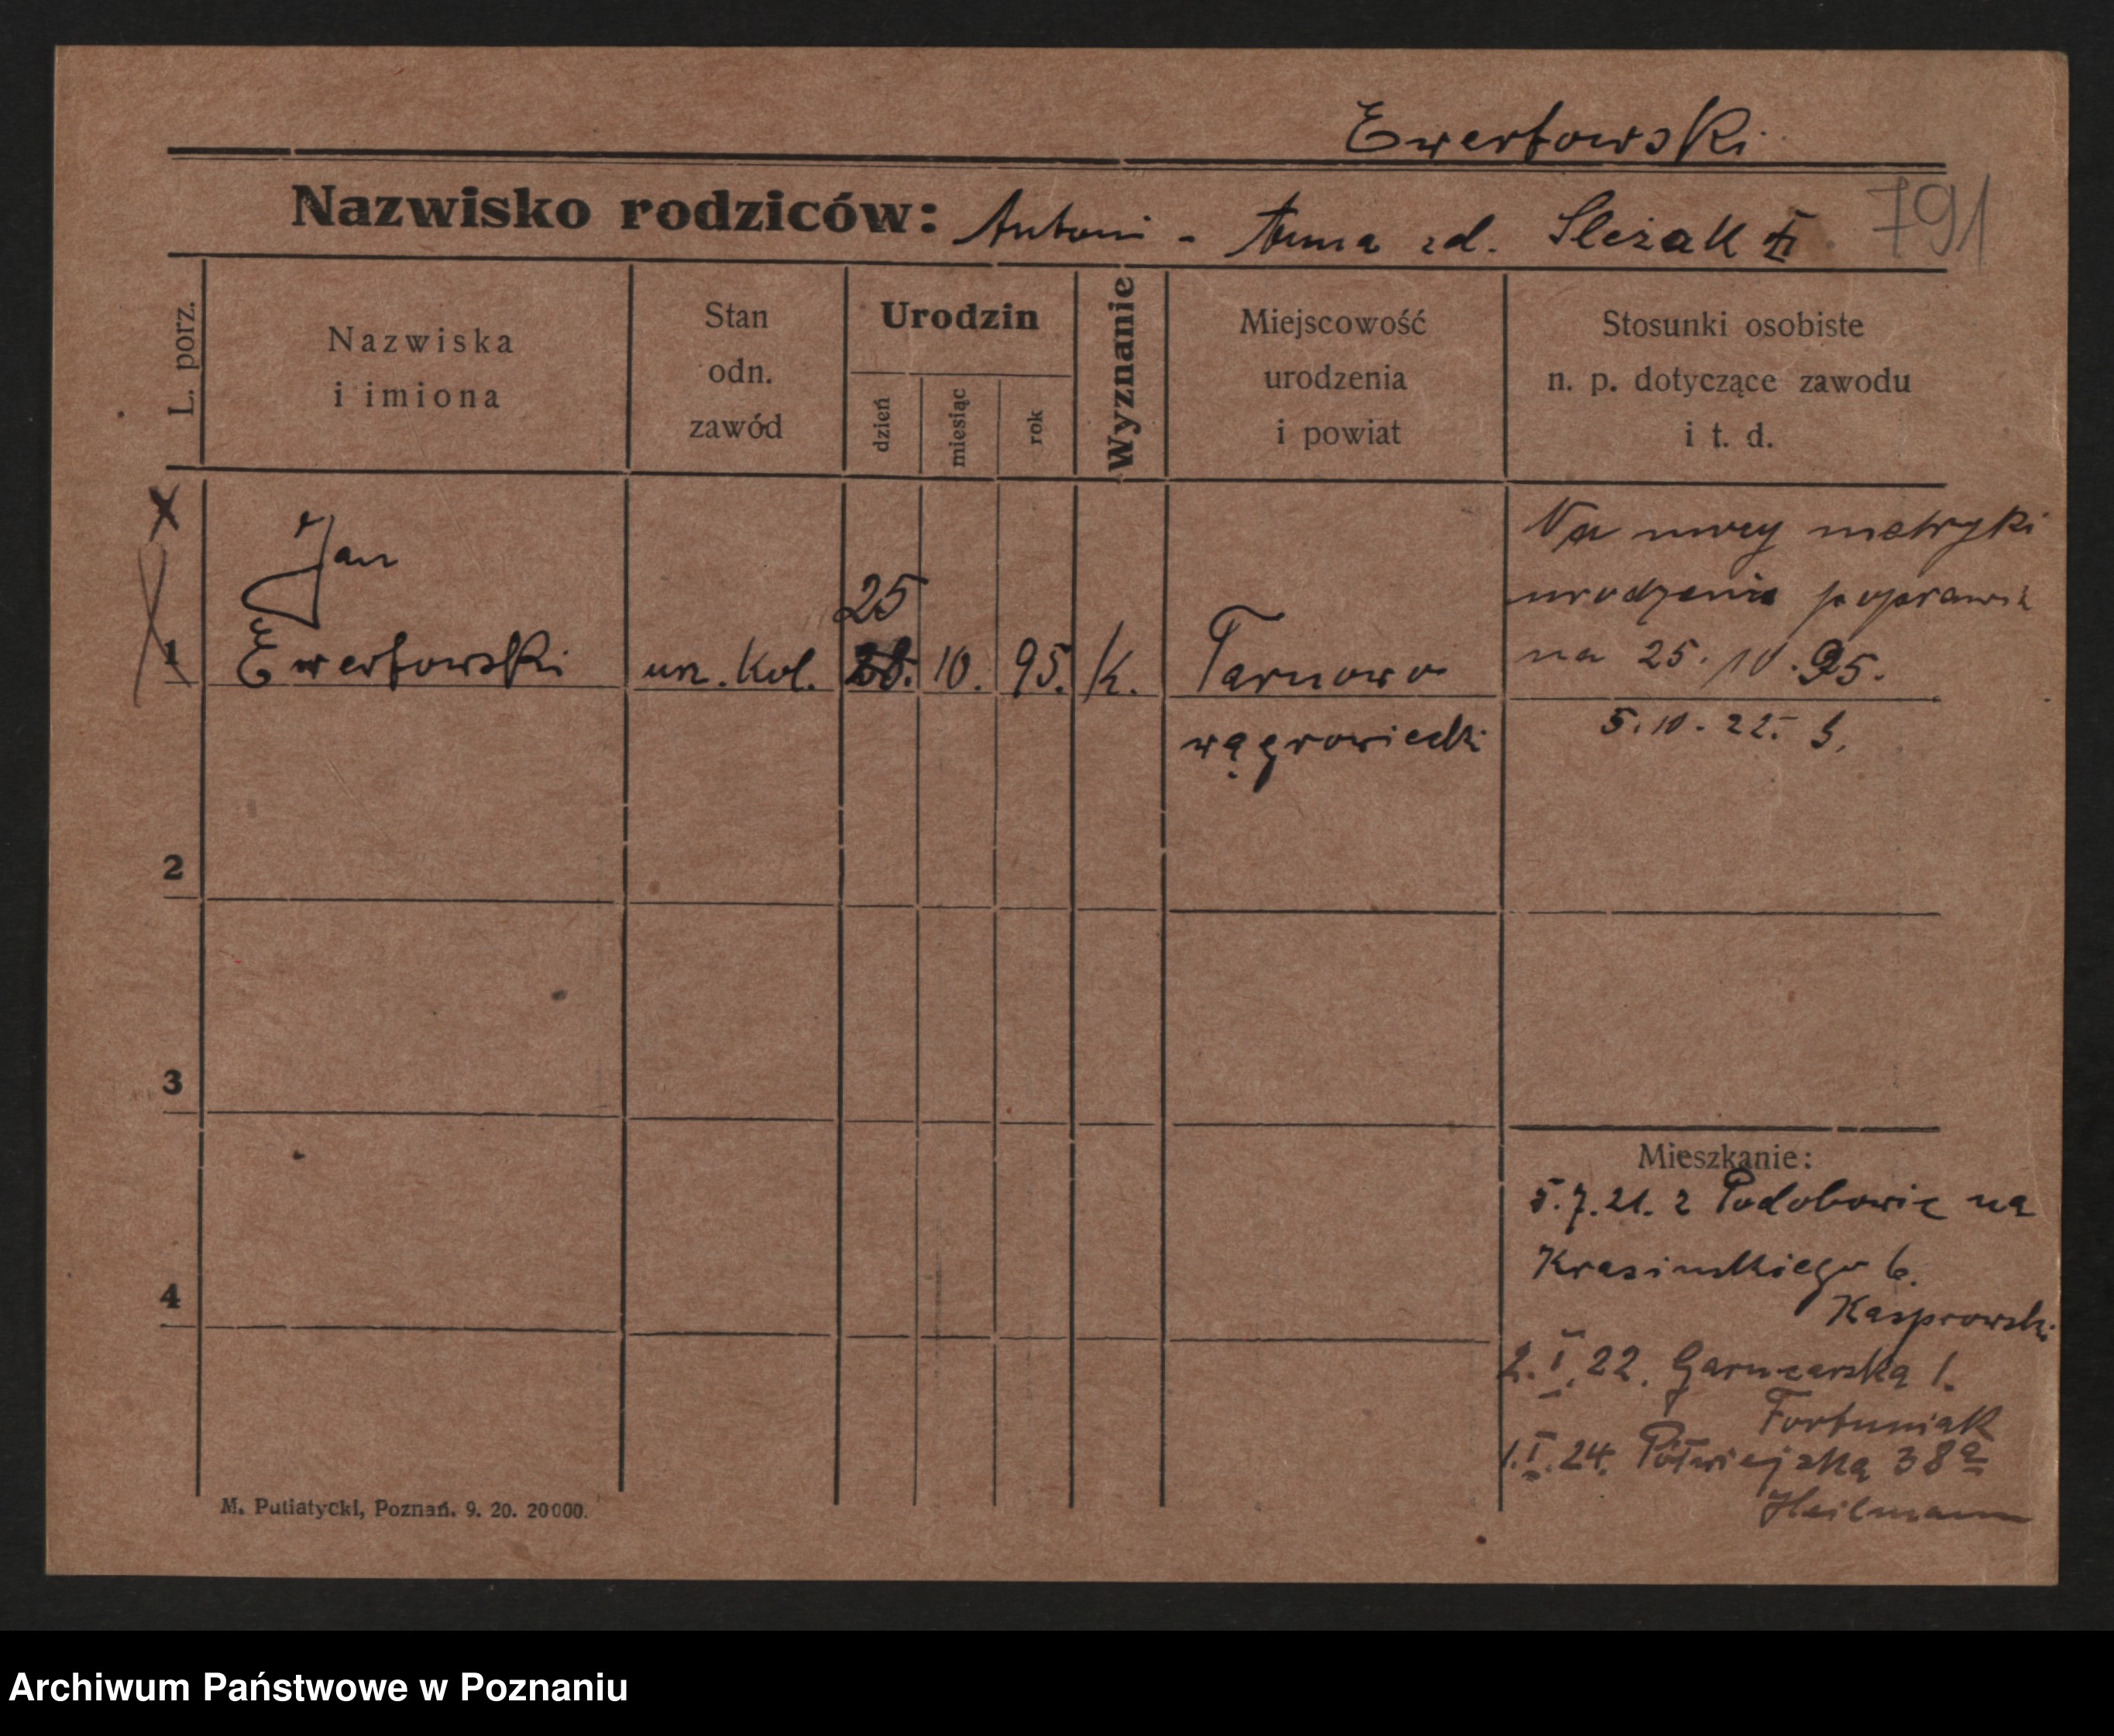 Ewertowski
Nazwisko rodziców: Antoni - Anna zd. Sleżak
791
L. porz.
Nazwiska
i imiona
Stan
odn.
zawód
Urodzin
dzień
miesiąc
rok
Wyznanie
Miejscowość
urodzenia
i powiat
Stosunki osobiste
n. p. dotyczące zawodu
i t. d.
1
Jan
Ewertowski
urz. Kol.
25
10.
95.
K.
Tarnowo
wągrowiecki
Na mocy metryki
urodzenia
na 25.10.95.
5.10.22.
2
3
4
Mieszkanie:
5.7.21. z Podobowic na
Krasinskiego 6.
Kasprowski
2.I.22. Garncarska 1.
Fortuniak
1.I.24. Półwiejska 38a
Heilmann
M. Putiatycki, Poznań. 9. 20. 20000.
Archiwum Państwowe w Poznaniu